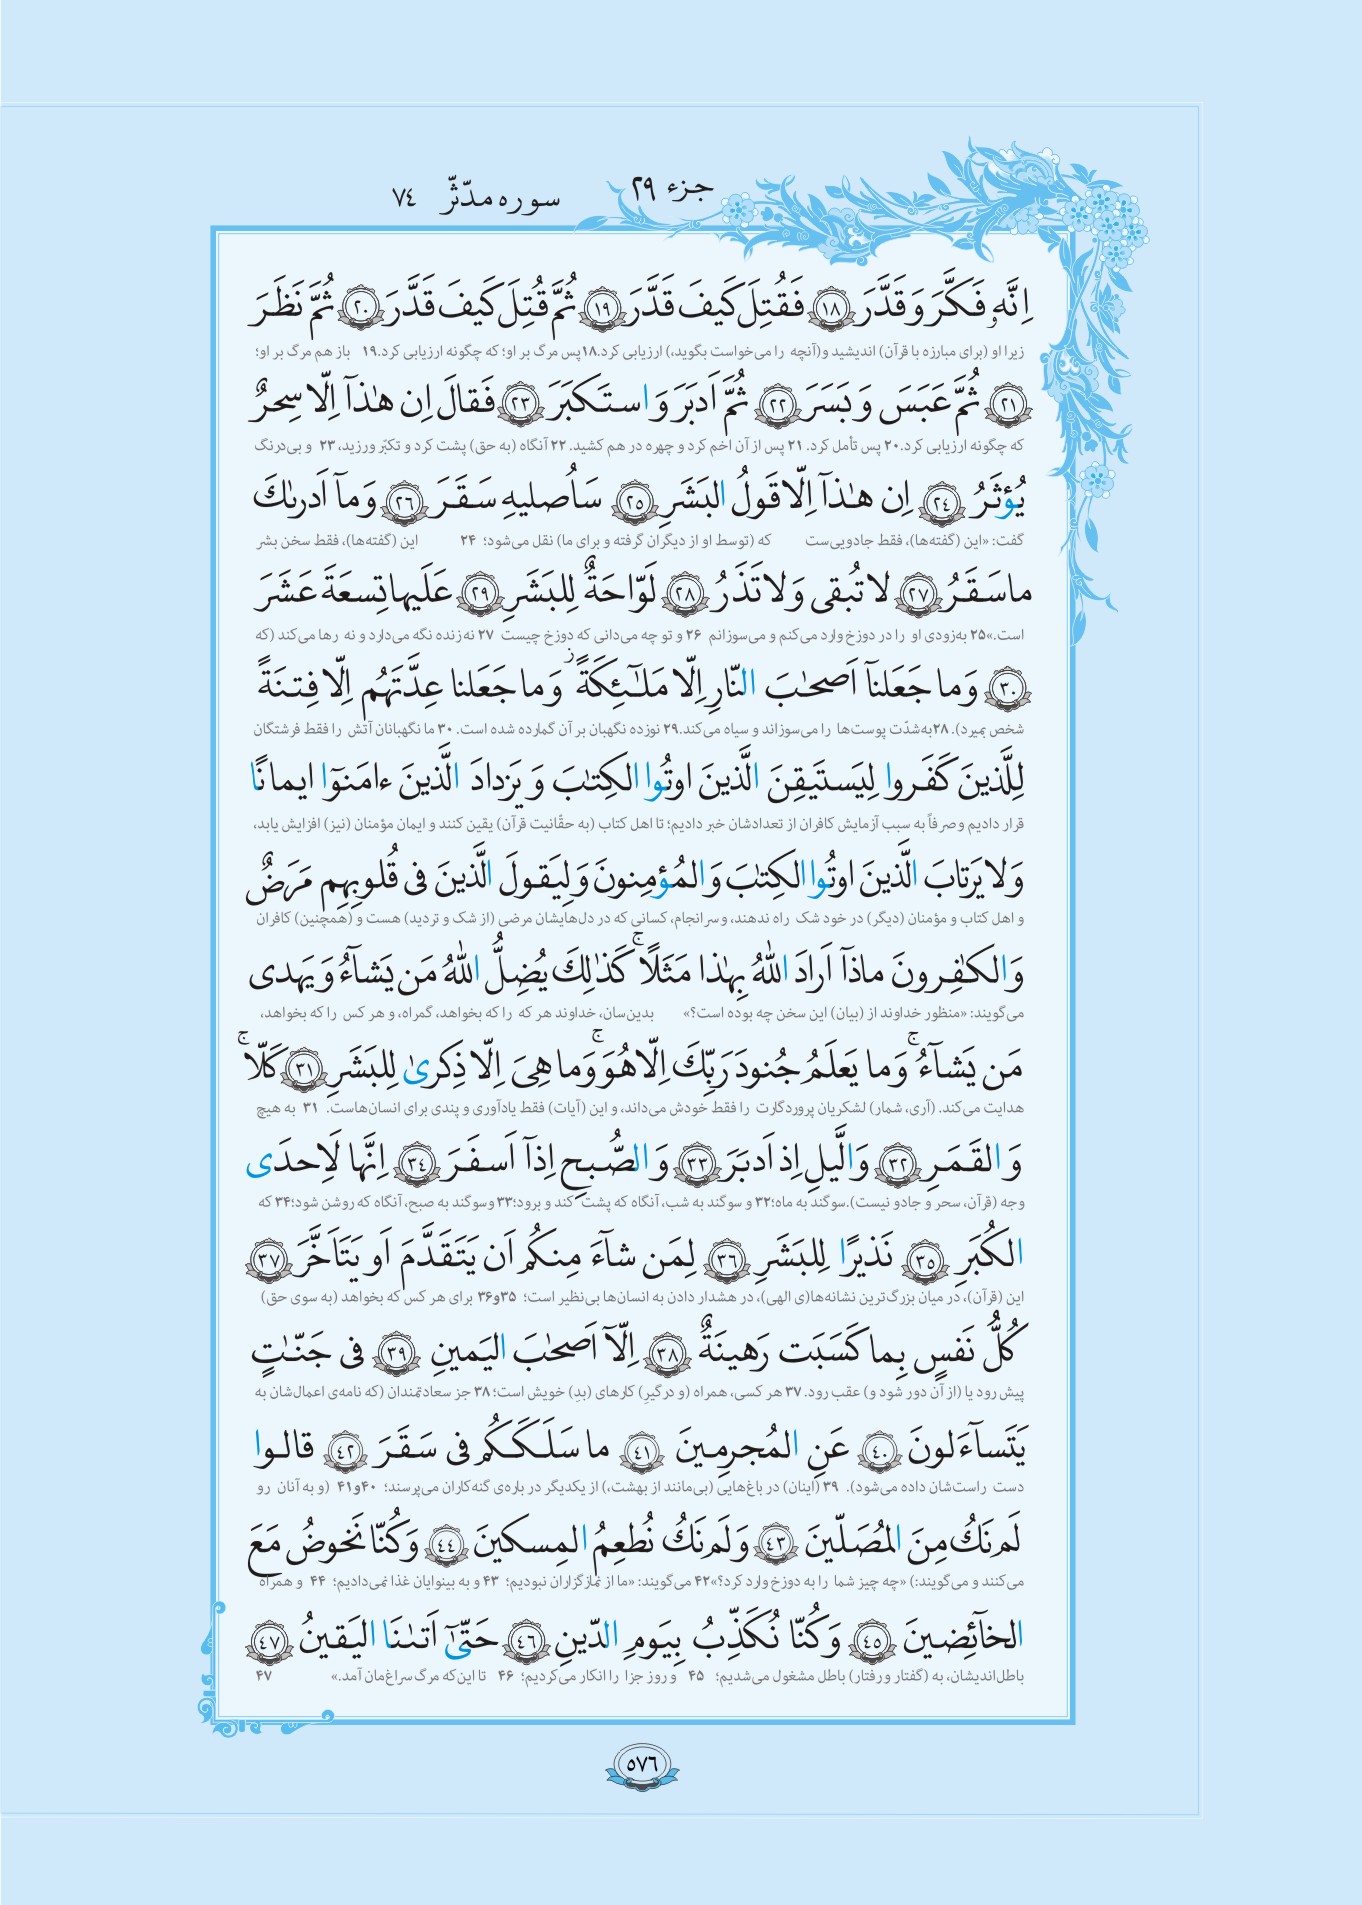 جزء ۲۹
سوره مدّثّر ٧٤
اِنَّهُ فَكَّرَ وَ قَدَّرَ ١٨ فَقُتِلَ كَيفَ قَدَّرَ ١٩ ثُمَّ قُتِلَ كَيفَ قَدَّرَ ٢٠ ثُمَّ نَظَرَ
زیرا او (برای مبارزه با قرآن) اندیشید و(آنچه را می‌خواست بگوید،) ارزیابی کرد.۱۸پس مرگ بر او؛ که چگونه ارزیابی کرد.۱۹ باز هم مرگ بر او؛
٢١ ثُمَّ عَبَسَ وَ بَسَرَ ٢٢ ثُمَّ اَدبَرَ وَ استَكبَرَ ٢٣ فَقالَ اِن هٰذآ اِلّا سِحرٌ
که چگونه ارزیابی کرد.۲۰ پس تأمل کرد. ۲۱ پس از آن اخم کرد و چهره در هم کشید. ۲۲ آنگاه (به حق) پشت کرد و تکبّر ورزید، ۲۳ و بی‌درنگ
يُؤثَرُ ٢٤ اِن هٰذآ اِلّا قَولُ البَشَرِ ٢٥ سَاُصليهِ سَقَرَ ٢٦ وَ مآ اَدرىٰكَ
گفت: «این (گفته‌ها)، فقط جادویی‌ست که (توسط او از دیگران گرفته و برای ما) نقل می‌شود؛ ۲۴ این (گفته‌ها)، فقط سخن بشر
ما سَقَرُ ٢٧ لا تُبقى وَ لا تَذَرُ ٢٨ لَوّاحَةٌ لِلبَشَرِ ٢٩ عَلَيها تِسعَةَ عَشَرَ
است.»۲۵ به‌زودی او را در دوزخ وارد می‌کنم و می‌سوزانم ۲۶ و تو چه می‌دانی که دوزخ چیست ۲۷ نه زنده نگه می‌دارد و نه رها می‌کند (که
٣٠ وَ ما جَعَلنآ اَصحٰبَ النّارِ اِلّا مَلٰٓئِكَةً ز وَ ما جَعَلنا عِدَّتَهُم اِلّا فِتنَةً
شخص بمیرد). ۲۸به‌شدّت پوست‌ها را می‌سوزاند و سیاه می‌کند.۲۹ نوزده نگهبان بر آن گمارده شده است. ۳۰ ما نگهبانان آتش را فقط فرشتگان
لِلَّذينَ كَفَروا لِيَستَيقِنَ الَّذينَ اوتُوا الكِتٰبَ وَ يَزدادَ الَّذينَ ءامَنوٓا ايمانًا
قرار دادیم و صرفاً به سبب آزمایش کافران از تعدادشان خبر دادیم؛ تا اهل کتاب (به حقّانیت قرآن) یقین کنند و ایمان مؤمنان (نیز) افزایش یابد،
وَ لا يَرتابَ الَّذينَ اوتُوا الكِتٰبَ وَ المُؤمِنونَ وَ لِيَقولَ الَّذينَ فى قُلوبِهِم مَرَضٌ
و اهل کتاب و مؤمنان (دیگر) در خود شک راه ندهند، و سرانجام، کسانی که در دل‌هایشان مرضی (از شک و تردید) هست و (همچنین) کافران
وَ الكٰفِرونَ ماذآ اَرادَ اللهُ بِهٰذا مَثَلًا ج كَذٰلِكَ يُضِلُّ اللهُ مَن يَشآءُ وَ يَهدى
می‌گویند: «منظور خداوند از (بیان) این سخن چه بوده است؟» بدین‌سان، خداوند هر که را که بخواهد، گمراه، و هر کس را که بخواهد،
مَن يَشآءُ ج وَ ما يَعلَمُ جُنودَ رَبِّكَ اِلّا هُوَ ج وَ ما هِىَ اِلّا ذِكرىٰ لِلبَشَرِ ٣١ كَلّا ج
هدایت می‌کند. (آری، شمار) لشکریان پروردگارت را فقط خودش می‌داند، و این (آیات) فقط یادآوری و پندی برای انسان‌هاست. ۳۱ به هیچ
وَ القَمَرِ ٣٢ وَ الَّيلِ اِذ اَدبَرَ ٣٣ وَ الصُّبحِ اِذآ اَسفَرَ ٣٤ اِنَّها لَاِحدَى
وجه (قرآن، سحر و جادو نیست).سوگند به ماه؛۳۲ و سوگند به شب، آنگاه که پشت کند و برود؛۳۳ وسوگند به صبح، آنگاه که روشن شود؛۳۴ که
الكُبَرِ ٣٥ نَذيرًا لِلبَشَرِ ٣٦ لِمَن شآءَ مِنكُم اَن يَتَقَدَّمَ اَو يَتَاَخَّرَ ٣٧
این (قرآن)، در میان بزرگ‌ترین نشانه‌ها(ی الهی)، در هشدار دادن به انسان‌ها بی‌نظیر است؛ ۳۵و۳۶ برای هر کس که بخواهد (به سوی حق)
كُلُّ نَفسٍ بِما كَسَبَت رَهينَةٌ ٣٨ اِلّآ اَصحٰبَ اليَمينِ ٣٩ فى جَنّٰتٍ
پیش رود یا (از آن دور شود و) عقب رود. ۳۷ هر کسی، همراه (و درگیرِ) کارهای (بدِ) خویش است؛ ۳۸ جز سعادتمندان (که نامه‌ی اعمال‌شان به
يَتَسآءَلونَ ٤٠ عَنِ المُجرِمينَ ٤١ ما سَلَكَكُم فى سَقَرَ ٤٢ قالوا
دست راست‌شان داده می‌شود). ۳۹ (اینان) در باغ‌هایی (بی‌مانند از بهشت،) از یکدیگر در باره‌ی گنه‌کاران می‌پرسند؛ ۴۰و۴۱ (و به آنان رو
لَم نَكُ مِنَ المُصَلّينَ ٤٣ وَ لَم نَكُ نُطعِمُ المِسكينَ ٤٤ وَ كُنّا نَخوضُ مَعَ
می‌کنند و می‌گویند:) «چه چیز شما را به دوزخ وارد کرد؟»۴۲ می‌گویند: «ما از نمازگزاران نبودیم؛ ۴۳ و به بینوایان غذا نمی‌دادیم؛ ۴۴ و همراه
الخآئِضينَ ٤٥ وَ كُنّا نُكَذِّبُ بِيَومِ الدّينِ ٤٦ حَتّىٰٓ اَتىٰنَا اليَقينُ ٤٧
باطل‌اندیشان، به (گفتار و رفتار) باطل مشغول می‌شدیم؛ ۴۵ و روز جزا را انکار می‌کردیم؛ ۴۶ تا این‌که مرگ سراغ‌مان آمد.» ۴۷
٥٧٦